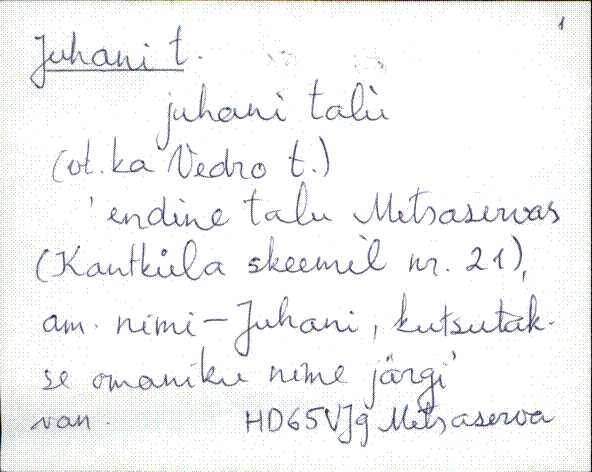 1
Juhani t.
juhani talu
(vt. ka Vedro t.)
'endine talu Metsaservas
(Kantküla skeemil nr. 21),
am. nimi - Juhani, kutsutak-
se omaniku nime järgi'
van. HD65VJg Metsaserva